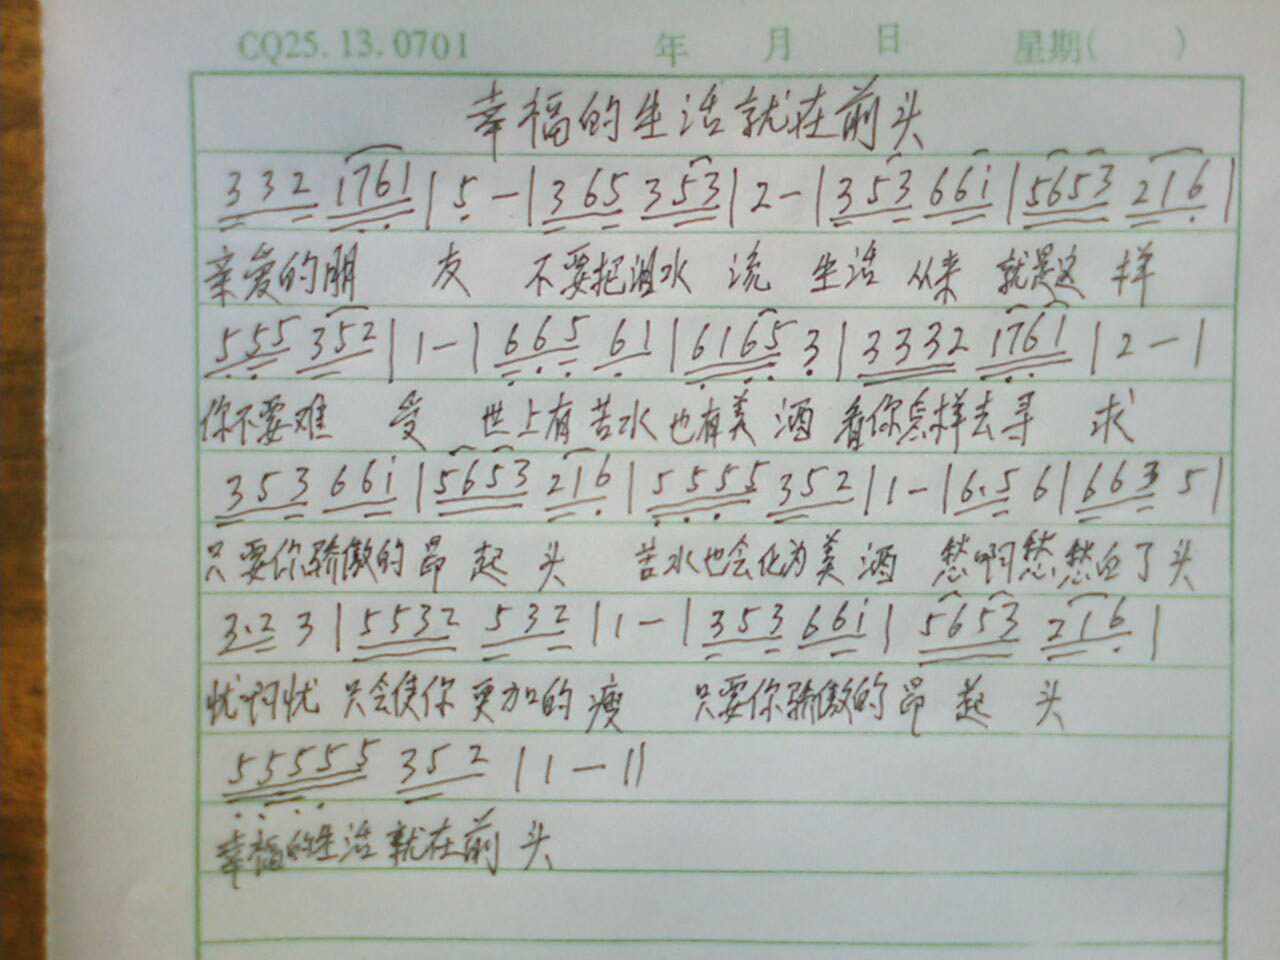 CQ25.13.0701 年 月 日 星期( )
幸福的生活就在前头
3 3 2 1761 | 5 — | 3 65 3 53 | 2 — | 3 53 66i | 5653 216 |
亲爱的朋 友 不要把泪水 流 生活 从来 就是这 样
555 352 | 1 — | 665 61 | 6165 3 | 3332 1761 | 2 — |
你不要难 受 世上有苦水也有美 酒 看你怎样去寻 求
353 66i | 5653 216 | 5555 352 | 1 — | 6.5 6 | 663 5 |
只要你骄傲的昂 起 头 苦水也会化为美 酒 愁啊愁 愁白了头
3.2 3 | 5532 532 | 1 — | 353 66i | 5653 216 |
忧啊忧 只会使你 更加的 瘦 只要你骄傲的昂 起 头
55555 352 | 1 — ||
幸福的生活 就在前 头